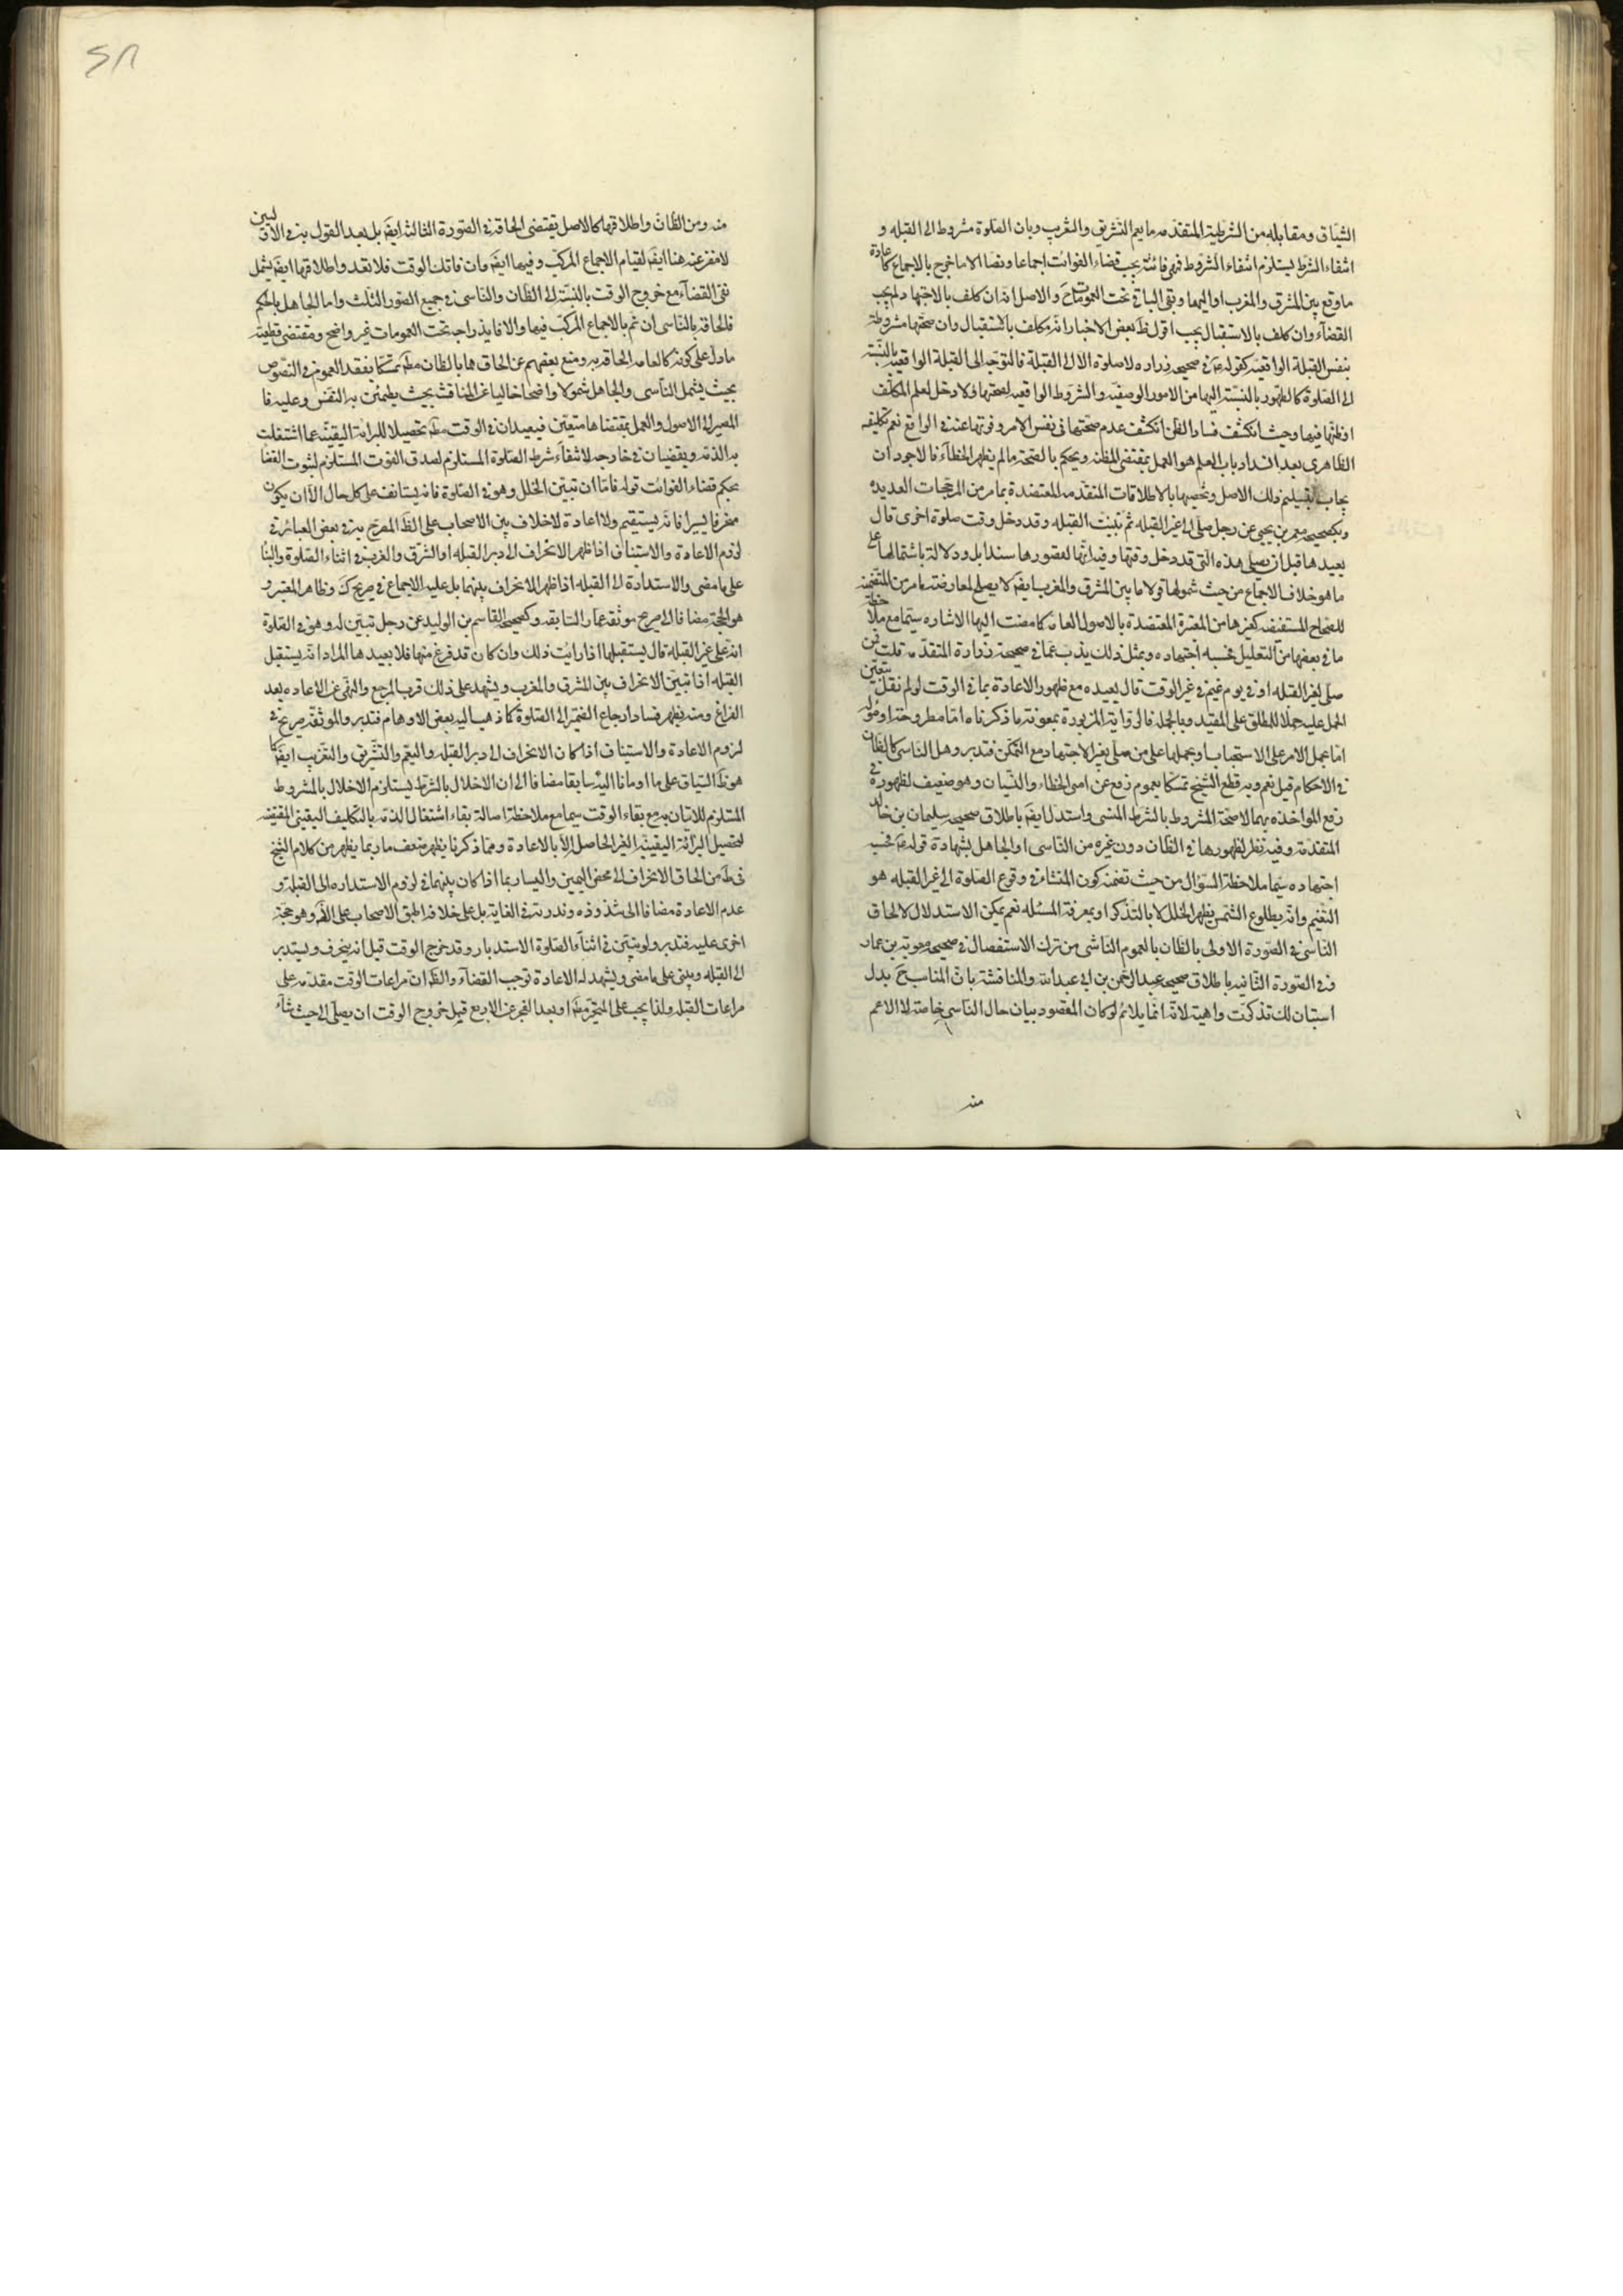 السّياق ومقابله من الشرطية المتقدمه ما يعم التشريق والتغريب وبان الصلوة مشروط الى القبله و
انتفاء الشرط يستلزم انتفاء المشروط فهى فائتة يجب قضاء الفوائت اجماعا ونصا الا ما خرج بالاجماع كاعادة
ما وقع بين المشرق والمغرب او اليهما وبقى الباقى تحت العمومات والاصل انه ان كلف بالاجتهاد لم يجب
القضاء وان كلف بالاستقبال يجب اقول ظ بعض الاخبار انه مكلف بالاستقبال وان صحتها مشروطة
بنفس القبلة الواقعية كقوله ع فى صحيحة زراره لا صلوة الا الى القبلة فالتوجه الى القبلة الواقعية بالنسبة
الى الصلوة كالطهور بالنسبة اليها من الامور الوصفية والشروط الواقعيه لصحتها ولا دخل لعلم المكلف
او ظنها فيها وحيث انكشف فساد الظن انكشف عدم صحتها فى نفس الامر وفوتها عنه فى الواقع نعم تكليفه
الظاهرى بعد انسداد باب العلم هو العمل بمقتضى المظنه ويحكم بالصحة ما لم يظهر الخطاء فالاجود ان
يجاب بتسليم ذلك الاصل وتخصيصها بالاطلاقات المتقدمه المعتضدة بما مر من المرجحات العديده
وبصحيحة معمر بن يحيى عن رجل صلى الى غير القبله ثم تبينت القبله وقد دخل وقت صلوة اخرى قال
يعيدها قبل ان يصلى هذه التى قد دخل وقتها وفيه انها لقصورها سندا بل ودلالة باشتمالها على
ما هو خلاف الاجماع من حيث شمولها ولا ما بين المشرق والمغرب ايضا لا يصلح لمعارضة ما مر من المتضمنة
للصحاح المستفيضه كغيرها من المعتبرة المعتضدة بالاصول العامه كما مضت اليها الاشاره سيما مع ملاحظة
ما فى بعضها من التعليل بحسبه اجتهاده وبمثل ذلك يذب عما فى صحيحة زرارة المتقدمه قلت فمن
صلى لغير القبله او فى يوم غيم فى غير الوقت قال يعيده مع ظهور الاعادة بما فى الوقت لو لم نقل بتعين
الحمل عليه حملا للمطلق على المقيد وبالجمله فالرواية المزبورة بمعونة ما ذكرناه اما مطروحة او مؤله
اما بحمل الامر على الاستحباب او بحملها على من صلى بغير الاجتهاد مع التمكن فتدبر وهل الناسى كالظان
فى الاحكام قيل نعم وبه قطع الشيخ تمسكا بعموم رفع عن امتى الخطاء والنسيان وهو ضعيف لظهوره فى
رفع المواخذه بهما لا صحة المشروط بالشرط المنسى واستدل ايضا باطلاق صحيحه سليمان بن خالد
المتقدمة وفيه نظر لظهورها فى الظان دون غيره من الناسى او الجاهل بشهادة قوله ع فحسبه
اجتهاده سيما ملاحظة السؤال من حيث تضمنه كون المنشاء فى وقوع الصلوة الى غير القبله هو
التغيم وانه بطلوع الشمس يظهر الخلل لا بالتذكر او بمعرفة المسئله نعم يمكن الاستدلال لالحاق
الناسى فى الصورة الاولى بالظان بالعموم الناشى من ترك الاستفصال فى صحيحة معوية بن عمار
وفى الصورة الثانيه باطلاق صحيحه عبد الرحمن بن ابى عبد الله والمناقشة بان المناسب ح بدل
استبان لك تذكرت واهية لانه انما يلائم لو كان المقصود بيان حال الناسى خاصة لا الاعم
منه
منه ومن الظان واطلاقها كالاصل يقتضى الحاقه فى الصورة الثالثه ايضا بل بعد القول به فى الاولين
لا مفر عنه هنا ايضا لقيام الاجماع المركب وفيها ايضا وان فاتك الوقت فلا تعد واطلاقها ايضا يشمل
نفى القضاء مع خروج الوقت بالنسبة الى الظان والناسى فى جميع الصور الثلث واما الجاهل بالحكم
فالحاقه بالناسى ان تم بالاجماع المركب فيها والا فاندراجه تحت العمومات غير واضح ومقتضى قطعية
ما دل على كونه كالعامد الحاقه به ومنع بعضهم عن الحاقهما بالظان مط تمسكا بفقد العموم فى النصوص
بحيث يشمل الناسى والجاهل شمولا واضحا خاليا عن المناقشة بحيث يطمئن به النفس وعليه فا
المصير الى الاصول والعمل بمقتضاها متعين فيعيدان فى الوقت مط تحصيلا للبرائة اليقينية عما اشتغلت
به الذمة ويقضيان فى خارجه لانتفاء شرط الصلوة المستلزم لصدق الفوت المستلزم لثبوت القضا
بحكم قضاء الفوائت قوله فاما ان تبين الخلل وهو فى الصلوة فانه يستانف على كل حال الا ان يكون
منحرفا يسيرا فانه يستقيم ولا اعادة لا خلاف بين الاصحاب على الظ المصرح به فى بعض العبائر فى
لزوم الاعادة والاستيناف اذا ظهر الانحراف الى دبر القبله او الشرق والغرب فى اثناء الصلوة والبنا
على ما مضى والاستدارة الى القبله اذا ظهر الانحراف بينهما بل عليه الاجماع فى صريح ك وظاهر المعتبر و
هو الحجة مضافا الى صريح موثقة عمار السابقه وكصحيحه القاسم بن الوليد عن رجل تبين له وهو فى الصلوة
انه على غير القبله قال يستقبلها اذا رايت ذلك وان كان قد فرغ منها فلا يعيدها المراد انه يستقبل
القبله اذا تبين الانحراف بين المشرق والمغرب ويشهد على ذلك قرب المرجع والنهى عن الاعاده بعد
الفراغ ومنه يظهر فساد ارجاع الضمير الى الصلوة كما ذهب اليه بعض الاوهام فتدبر والموثقة صريح فى
لزوم الاعادة والاستيناف اذا كان الانحراف الى دبر القبله والتشريق والتغريب ايضا كما
هو ظ السياق على ما اومانا اليه سابقا مضافا الى ان الاخلال بالشرط يستلزم الاخلال بالمشروط
المستلزم للاتيان به مع بقاء الوقت سيما مع ملاحظة اصالة بقاء اشتغال الذمة بالتكليف اليقينى المقتضية
لتحصيل البرائة اليقينية الغير الحاصل الا بالاعادة ومما ذكرنا يظهر ضعف ما ربما يظهر من كلام الشيخ
فى ط من الحاق الانحراف الى محض اليمين واليسار بما اذا كان بينهما فى لزوم الاستداره الى القبلة و
عدم الاعادة مضافا الى شذوذه وندرته فى الغاية بل على خلافه اطبق الاصحاب على الظ وهو حجة
اخرى عليه فتدبر ولو تبين فى اثناء الصلوة الاستدبار وقد خرج الوقت قيل انه ينحرف ويستدير
الى القبله ويبنى على ما مضى ويشهد له الاعادة توجب القضاء والظ ان مراعات الوقت مقدمه على
مراعات القبله ولذا يجب على المتحير مط او بعد العجز عن الاربع قبل خروج الوقت ان يصلى الى حيث شاء